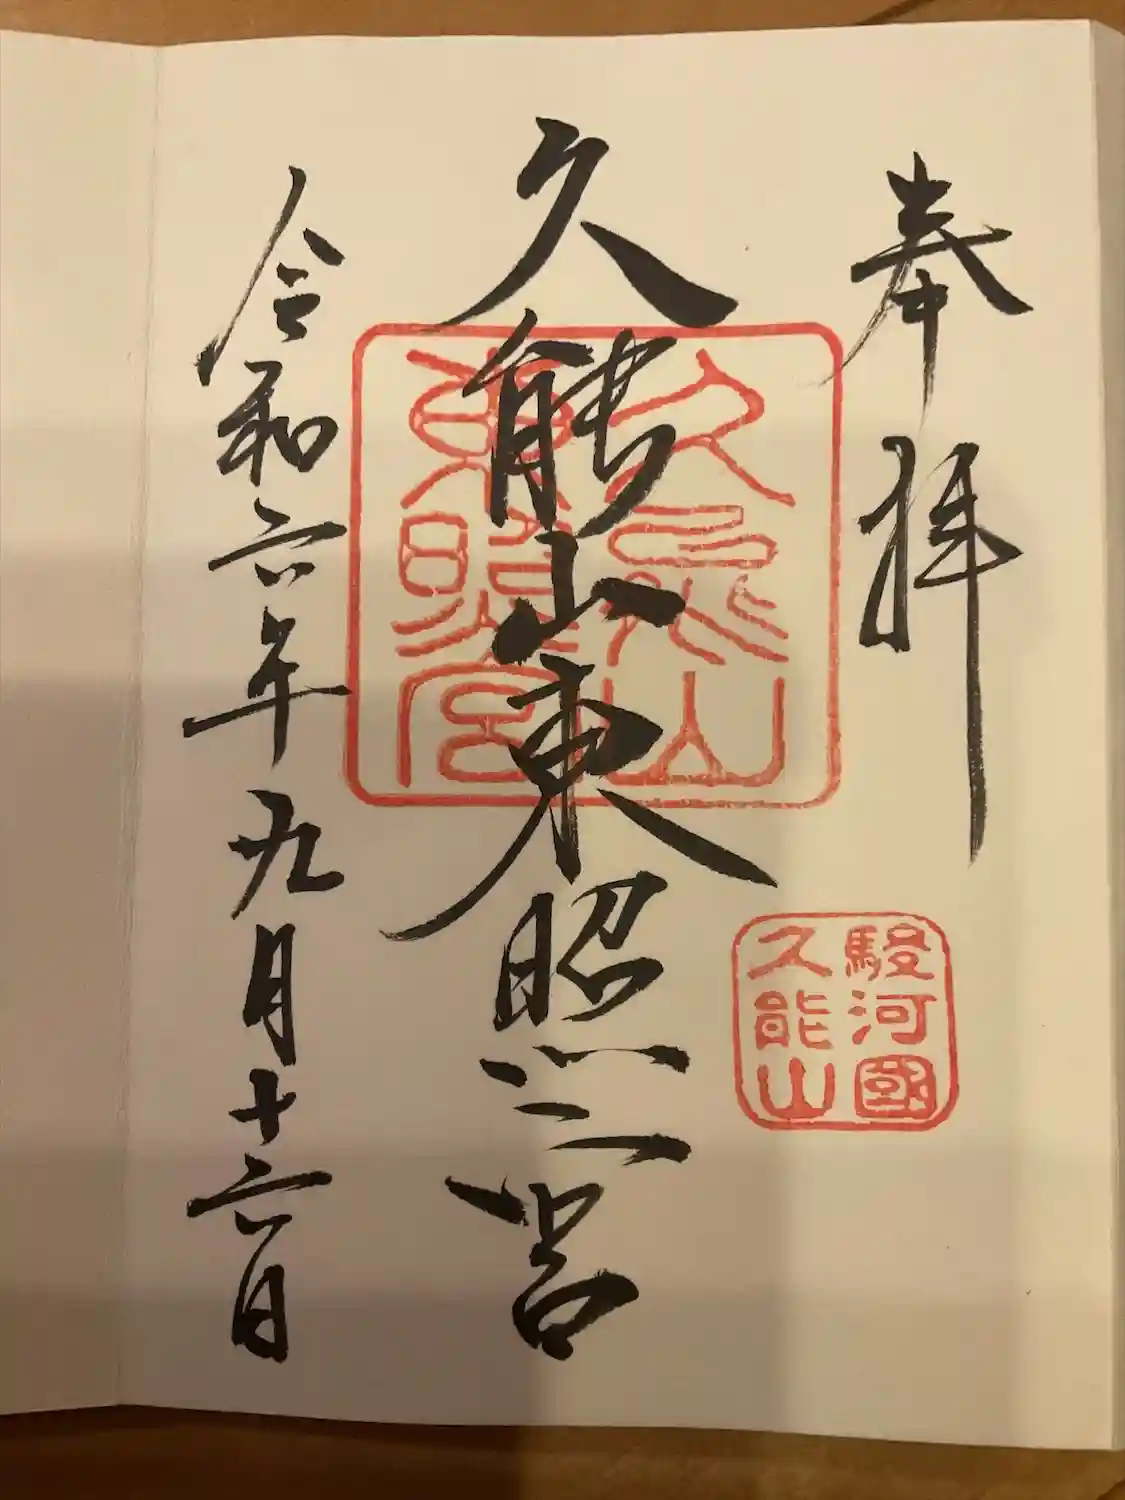 奉拝
駿河國
久能山
久能山東照宮
久能山
東照宮
令和六年九月十六日